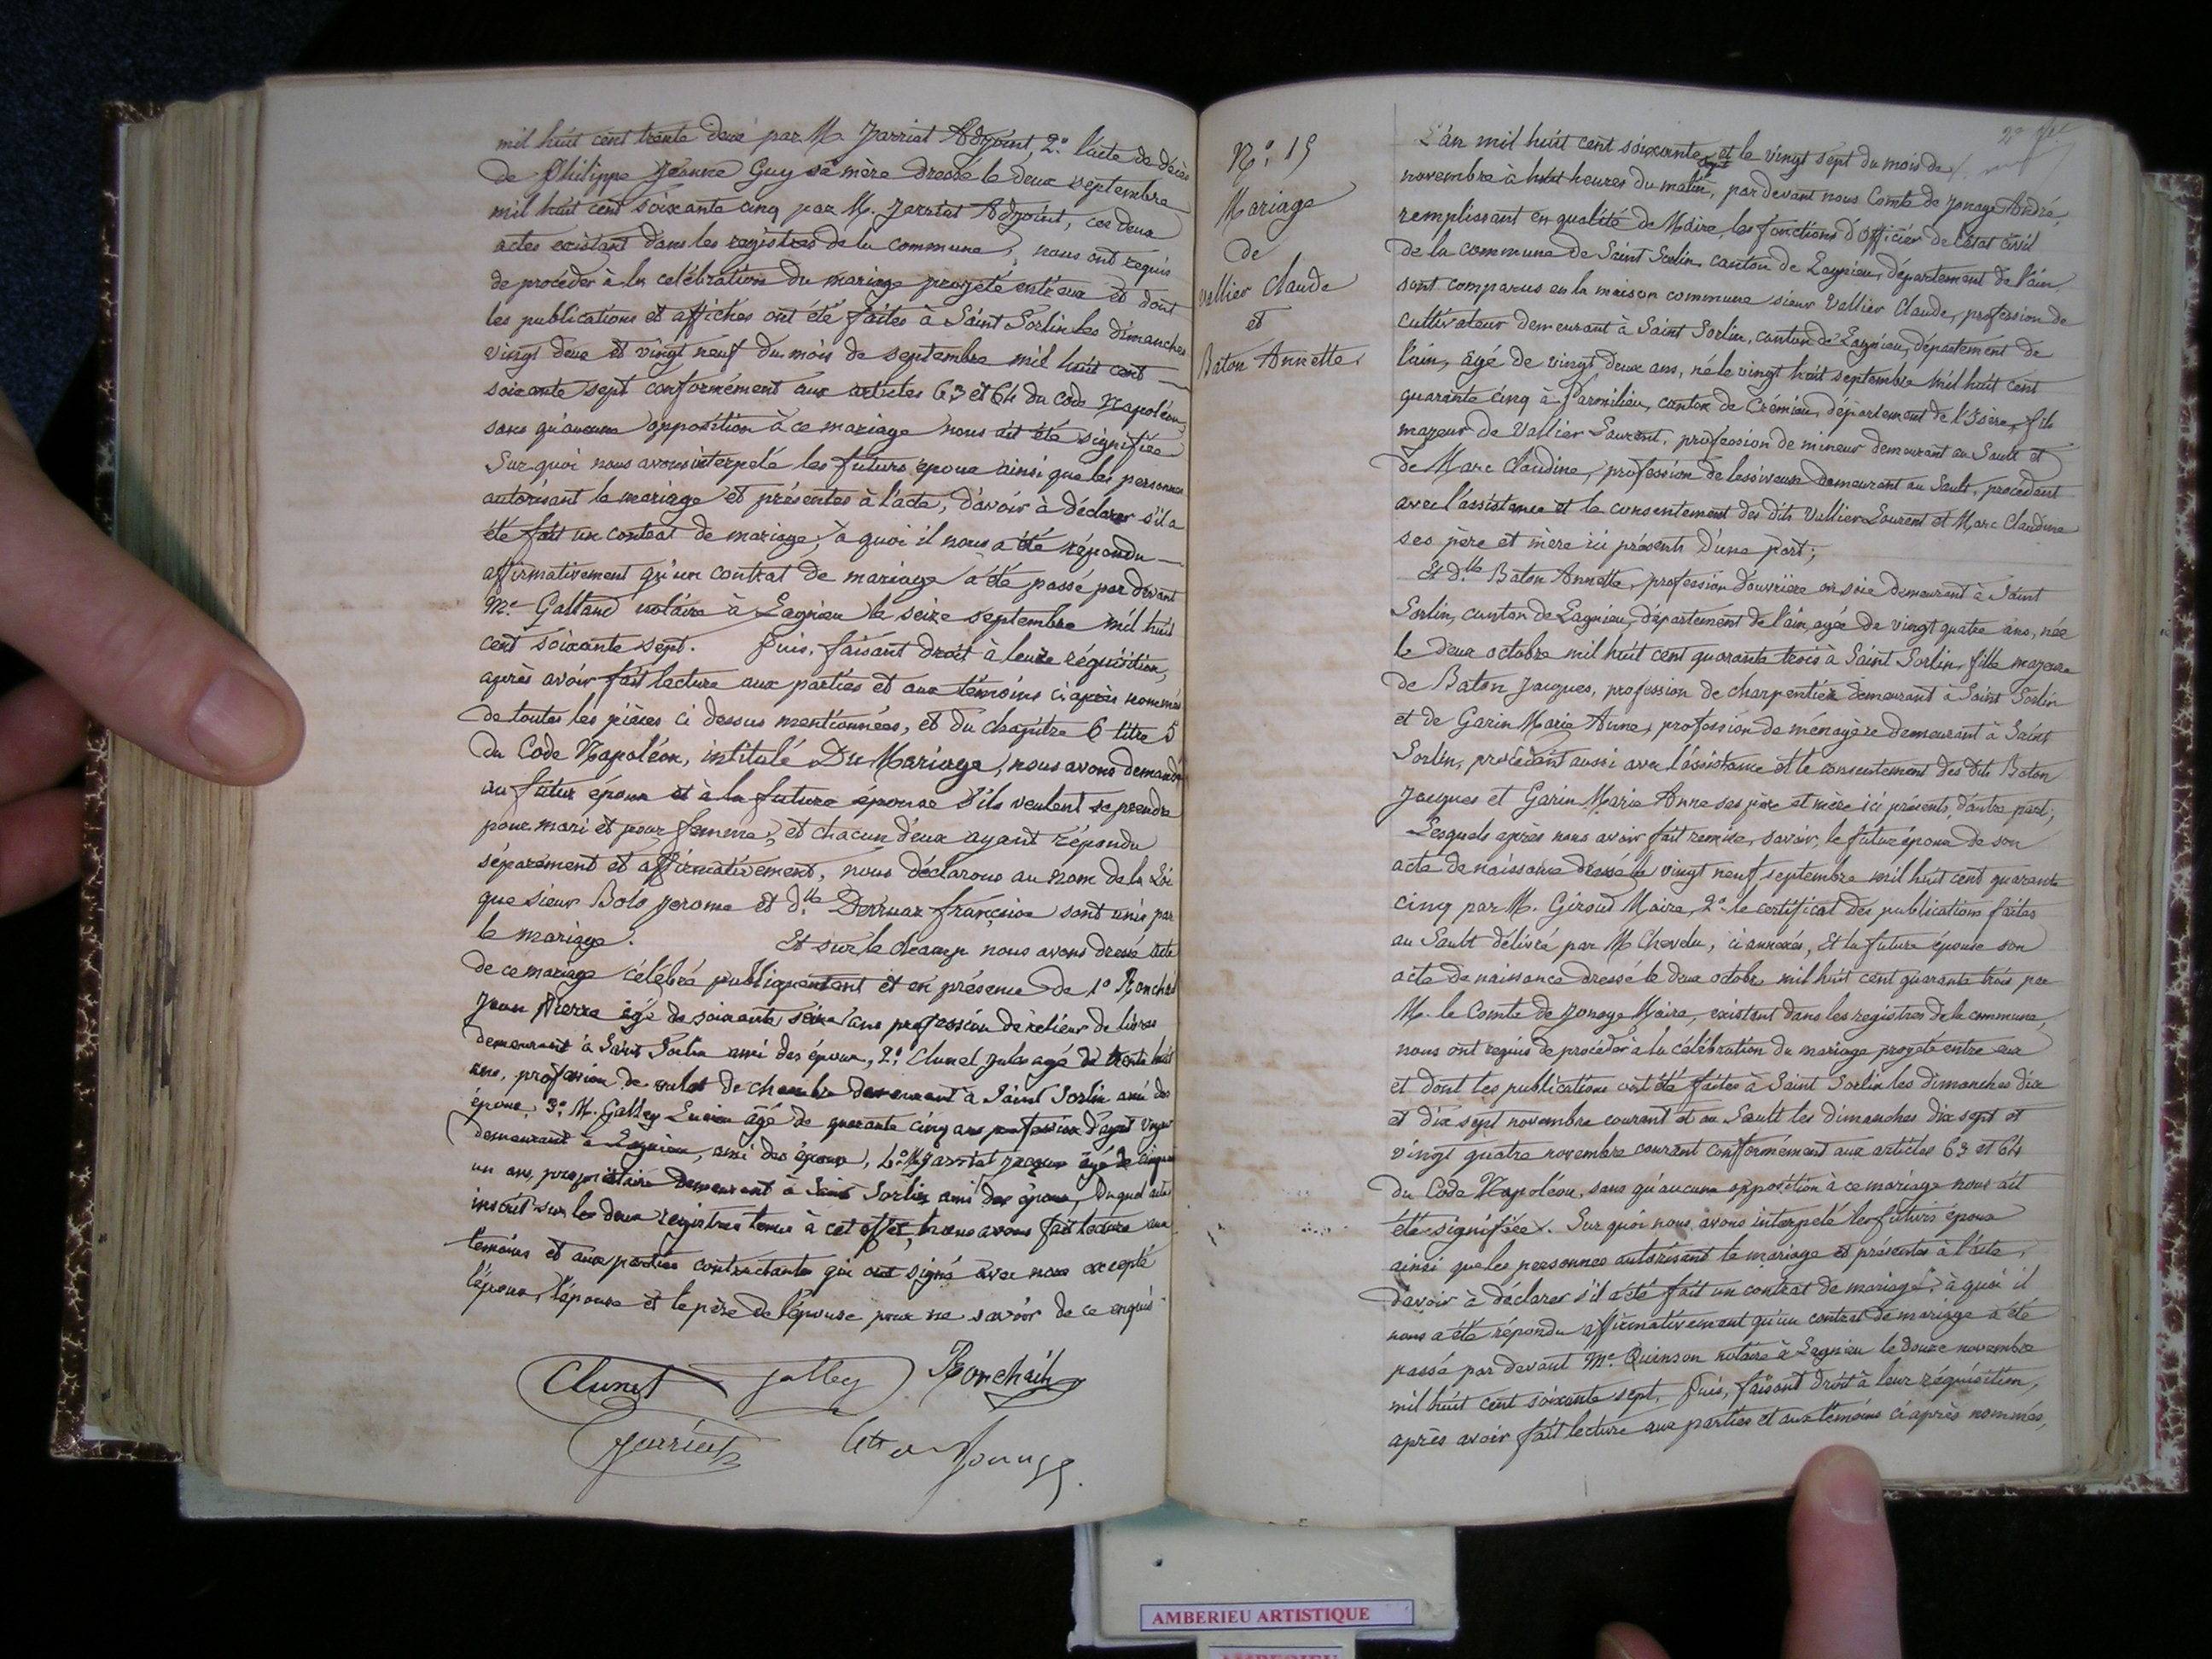 mil huit cent trente deux par M. Jarriat Adjoint, 2º l'acte de décès
de Philippe Jeanne Guy sa mère dressé le deux septembre
mil huit cent soixante cinq par M. Jarriat Adjoint, ces deux
actes existant dans les registres de la commune, nous ont requis
de procéder à la célébration du mariage projeté entr'eux et dont
les publications et affiches ont été faites à Saint Sorlin les dimanches
vingt deux et vingt neuf du mois de septembre mil huit cent
soixante sept conformément aux articles 63 et 64 du Code Napoléon,
sans qu'aucune opposition à ce mariage nous ait été signifiée
Sur quoi nous avons interpelé les futurs epoux ainsi que les personnes
autorisant le mariage et présentes à l'acte, d'avoir à déclarer s'il a
été fait un contrat de mariage, à quoi il nous a été répondu
affirmativement qu'un contrat de mariage a été passé par devant
Me Galland notaire à Lagnieu le seize septembre mil huit
cent soixante sept. Puis, faisant droit à leur réquisition,
après avoir fait lecture aux parties et aux témoins ci après nommés
de toutes les pièces ci dessus mentionnées, et du chapitre 6 titre 5
du Code Napoléon, intitulé Du Mariage, nous avons demandé
au futur epoux et à la future épouse s'ils veulent se prendre
pour mari et pour femme, et chacun d'eux ayant répondu
séparément et affirmativement, nous déclarons au nom de la Loi
que sieur Bolo Jerome et dlle Derruaz françoise sont unis par
le mariage. Et sur le champ nous avons dressé acte
de ce mariage célébré publiquement et en présence de 1º Ronchail
Jean Pierre âgé de soixante seize ans profession de relieur de livres
demeurant à Saint Sorlin ami des époux, 2º Clunet Jules agé de trente huit
ans, profession de valet de chambre demeurant à Saint Sorlin ami des
époux, 3º M. Galley Lucien âgé de quarante cinq ans profession d'agent voyer
demeurant à Lagnieu, ami des époux, 4º M. Jarriat Jacques âgé de cinquante
un ans, propriétaire demeurant à Saint Sorlin ami des époux, Duquel acte
inscrit sur les deux registres tenus à cet effet, nous avons fait lecture aux
témoins et aux parties contractantes qui ont signé avec nous excepté
l'époux, l'épouse et le père de l'épouse pour ne savoir de ce enquis
Clunet Galley Ronchail
Jarriat Cte de Jonage
Nº 19
Mariage
de
Vallier Claude
et
Baton Annette
L'an mil huit cent soixante sept et le vingt sept du mois de
novembre à huit heures du matin, par devant nous Comte de Jonage André,
remplissant en qualité de Maire, les fonctions d'officier de l'état civil
de la commune de Saint Sorlin, canton de Lagnieu, département de l'ain
sont comparus en la maison commune sieur Vallier Claude, profession de
cultivateur demeurant à Saint Sorlin, canton de Lagnieu, département de
l'ain, âgé de vingt deux ans, né le vingt huit septembre mil huit cent
quarante cinq à Parmilieu, canton de Crémieu, département de l'Isère, fils
majeur de Vallier Laurent, profession de mineur demeurant au Sault et
de Marc Claudine, profession de lessiveuse demeurant au Sault, procédant
avec l'assistance et le consentement des dits Vallier Laurent et Marc Claudine
ses père et mère ici présents d'une part;
Et dlle Baton Annette, profession d'ouvrière en soie demeurant à Saint
Sorlin, canton de Lagnieu, département de l'ain, agée de vingt quatre ans, née
le deux octobre mil huit cent quarante trois à Saint Sorlin, fille majeure
de Baton Jacques, profession de charpentier demeurant à Saint Sorlin
et de Garin Marie Anne, profession de ménagère demeurant à Saint
Sorlin, procédant aussi avec l'assistance et le consentement des dits Baton
Jacques et Garin Marie Anne ses père et mère ici présents, d'autre part;
Lesquels après nous avoir fait remise, savoir, le futur époux de son
acte de naissance dressé le vingt neuf septembre mil huit cent quarante
cinq par M. Giroud Maire, 2º le certificat des publications faites
au Sault délivré par M. Chevelu, ci annexés, Et la future épouse son
acte de naissance dressé le deux octobre mil huit cent quarante trois par
M. le Comte de Jonage Maire, existant dans les registres de la commune,
nous ont requis de procéder à la célébration du mariage projeté entre eux
et dont les publications ont été faites à Saint Sorlin les dimanches dix
et dix sept novembre courant et au Sault les dimanches dix sept et
vingt quatre novembre courant conformément aux articles 63 et 64
du Code Napoléon, sans qu'aucune opposition à ce mariage nous ait
été signifiée. Sur quoi nous avons interpelé les futurs époux
ainsi que les personnes autorisant le mariage et présentes à l'acte,
d'avoir à déclarer s'il a été fait un contrat de mariage, à quoi il
nous a été répondu affirmativement qu'un contrat de mariage a été
passé par devant Me Quinson notaire à Lagnieu le douze novembre
mil huit cent soixante sept. Puis, faisant droit à leur réquisition,
après avoir fait lecture aux parties et aux témoins ci après nommés,
AMBERIEU ARTISTIQUE